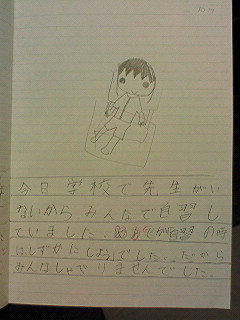 今日学校で先生がい
ないからみんなで自習し
ていました。めあてが自習の時
はしずかにしよう。でした。だから
みんなしゃべりませんでした。